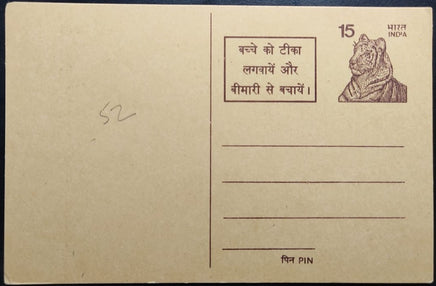 52
बच्चे को टीका
लगवायें और
बीमारी से बचायें।
15
भारत
INDIA
पिन PIN